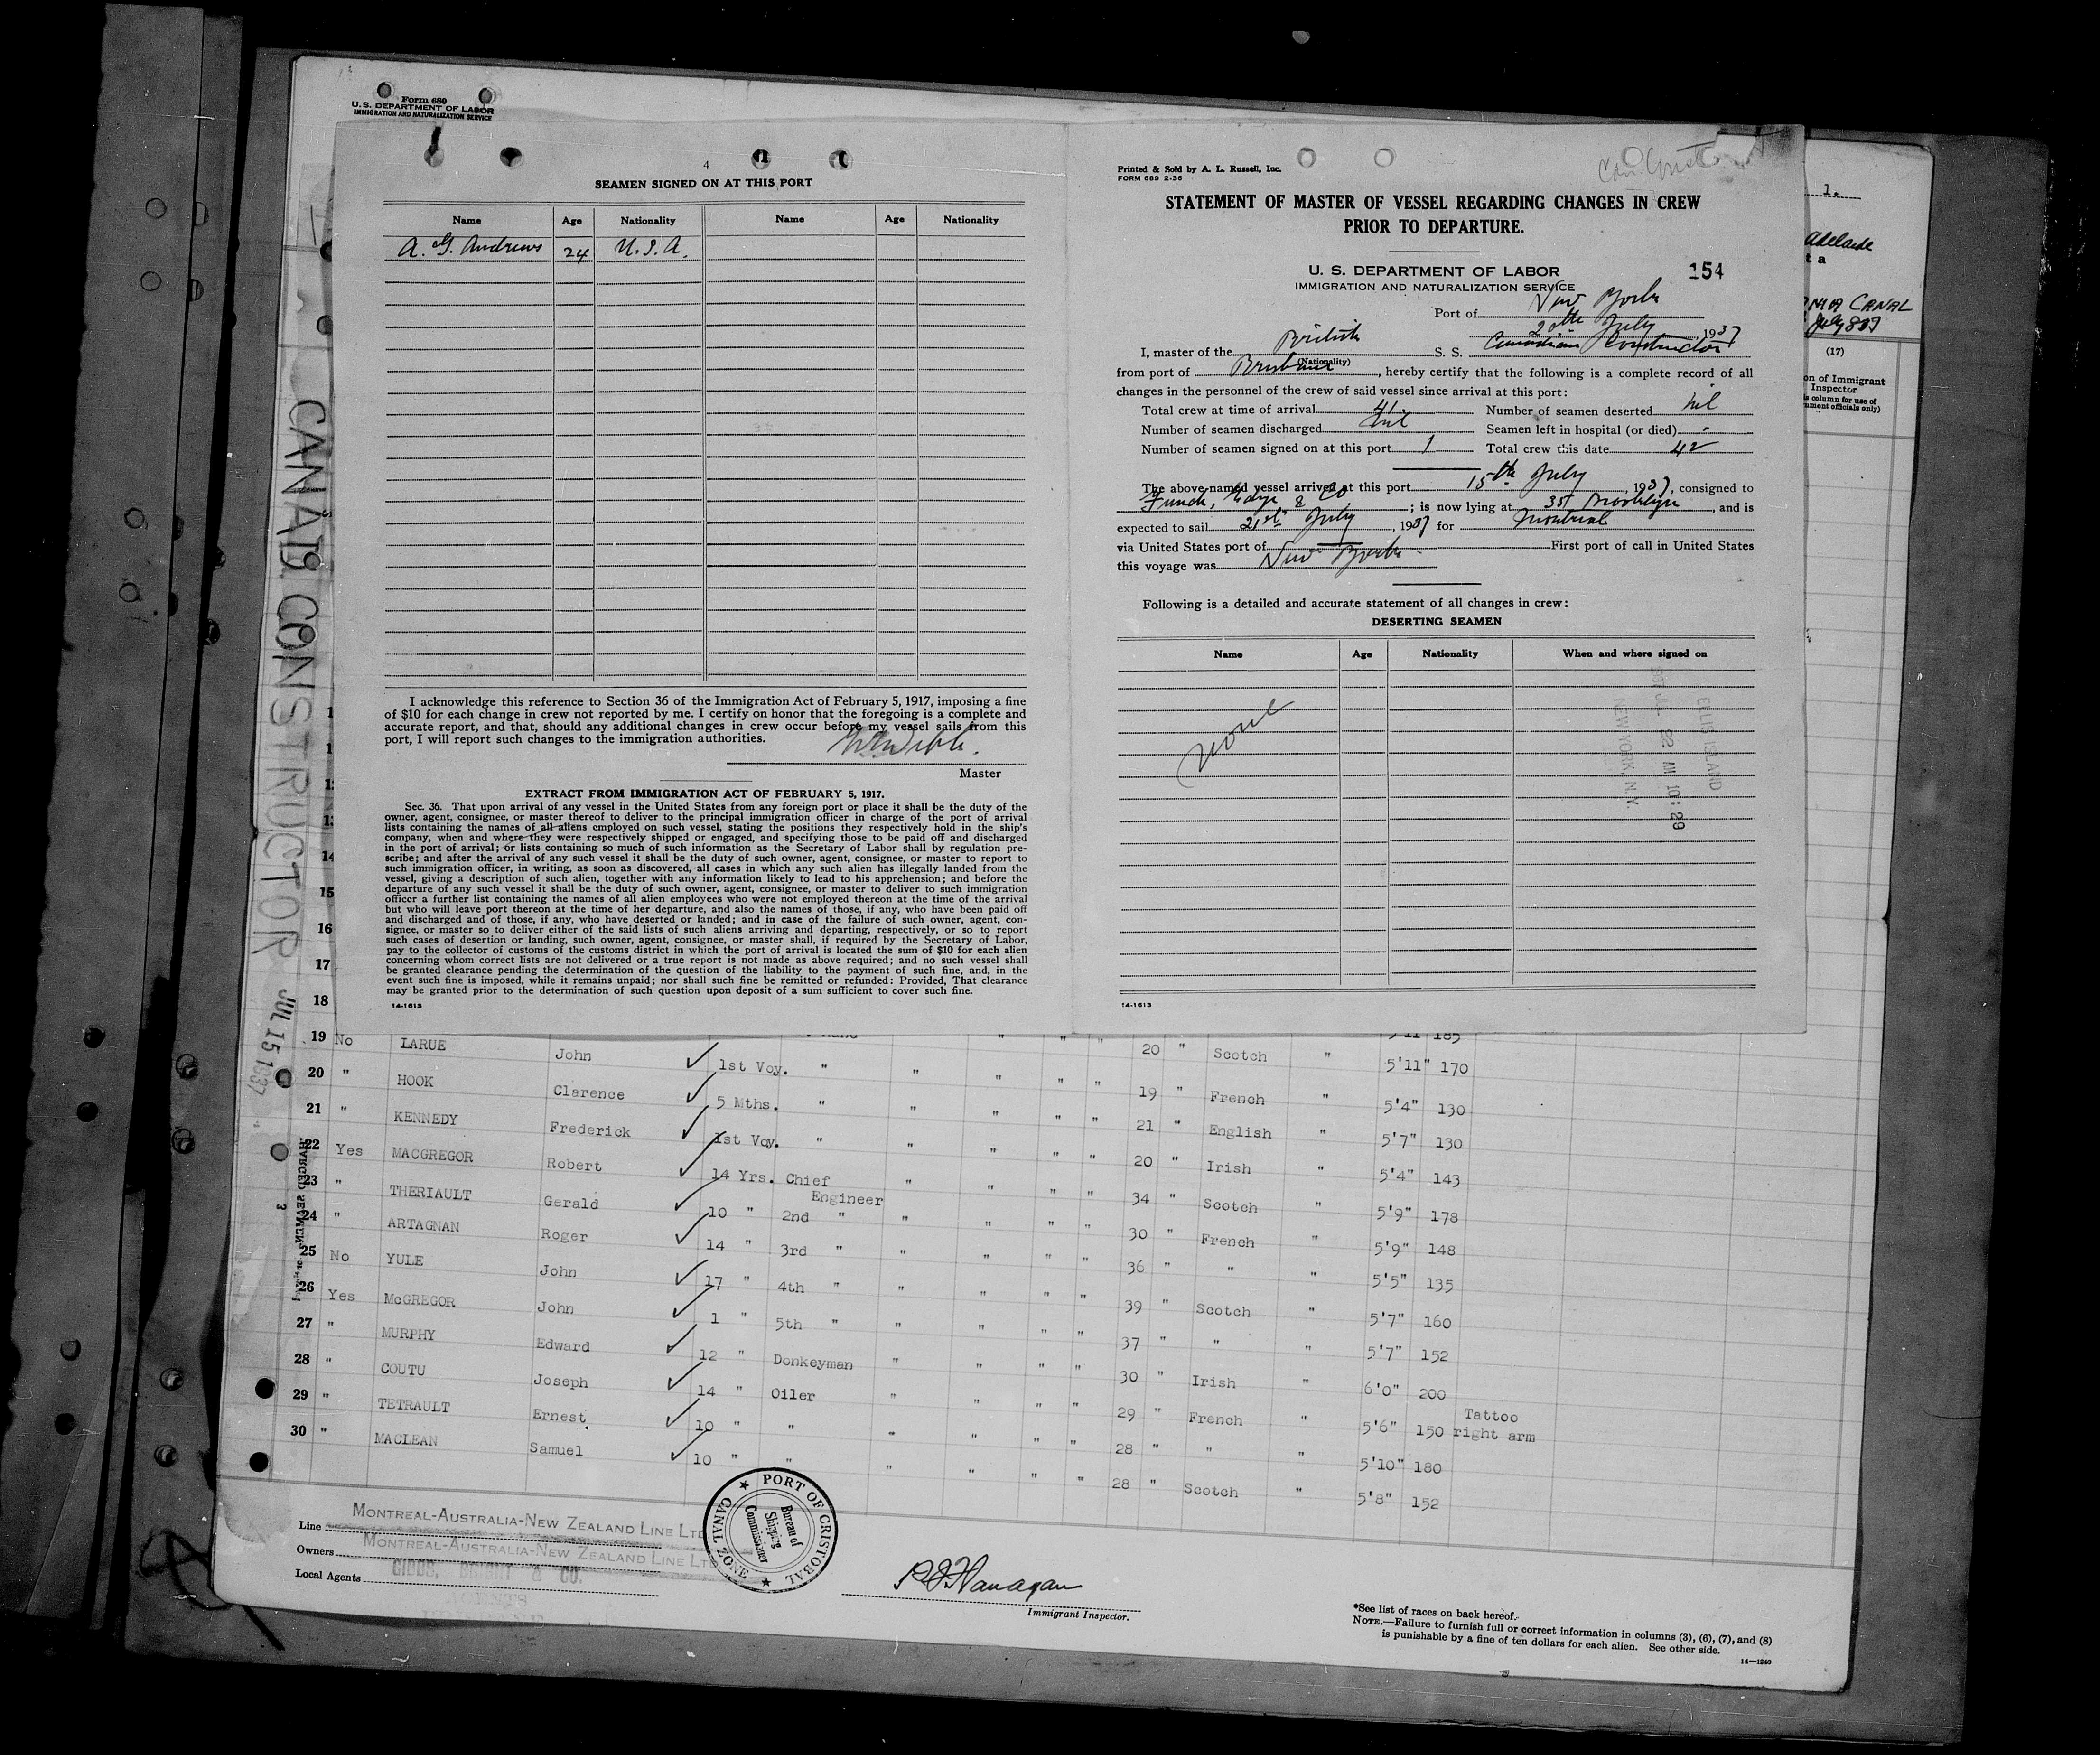 Form 680
U. S. DEPARTMENT OF LABOR
IMMIGRATION AND NATURALIZATION SERVICE
4
SEAMEN SIGNED ON AT THIS PORT
Name Age Nationality Name Age Nationality
A. G. Andrews 24 U.S.A.
I acknowledge this reference to Section 36 of the Immigration Act of February 5, 1917, imposing a fine
of $10 for each change in crew not reported by me. I certify on honor that the foregoing is a complete and
accurate report, and that, should any additional changes in crew occur before my vessel sails from this
port, I will report such changes to the immigration authorities.
Master
EXTRACT FROM IMMIGRATION ACT OF FEBRUARY 5, 1917.
Sec. 36. That upon arrival of any vessel in the United States from any foreign port or place it shall be the duty of the
owner, agent, consignee, or master thereof to deliver to the principal immigration officer in charge of the port of arrival
lists containing the names of all aliens employed on such vessel, stating the positions they respectively hold in the ship's
company, when and where they were respectively shipped or engaged, and specifying those to be paid off and discharged
in the port of arrival; or lists containing so much of such information as the Secretary of Labor shall by regulation pre-
scribe; and after the arrival of any such vessel it shall be the duty of such owner, agent, consignee, or master to report to
such immigration officer, in writing, as soon as discovered, all cases in which any such alien has illegally landed from the
vessel, giving a description of such alien, together with any information likely to lead to his apprehension; and before the
departure of any such vessel it shall be the duty of such owner, agent, consignee, or master to deliver to such immigration
officer a further list containing the names of all alien employees who were not employed thereon at the time of the arrival
but who will leave port thereon at the time of her departure, and also the names of those, if any, who have been paid off
and discharged and of those, if any, who have deserted or landed; and in case of the failure of such owner, agent, con-
signee, or master so to deliver either of the said lists of such aliens arriving and departing, respectively, or so to report
such cases of desertion or landing, such owner, agent, consignee, or master shall, if required by the Secretary of Labor,
pay to the collector of customs of the customs district in which the port of arrival is located the sum of $10 for each alien
concerning whom correct lists are not delivered or a true report is not made as above required; and no such vessel shall
be granted clearance pending the determination of the question of the liability to the payment of such fine, and, in the
event such fine is imposed, while it remains unpaid; nor shall such fine be remitted or refunded: Provided, That clearance
may be granted prior to the determination of such question upon deposit of a sum sufficient to cover such fine.
14-1613
Printed & Sold by A. L. Russell, Inc.
FORM 689 2-36
STATEMENT OF MASTER OF VESSEL REGARDING CHANGES IN CREW
PRIOR TO DEPARTURE.
U. S. DEPARTMENT OF LABOR 154
IMMIGRATION AND NATURALIZATION SERVICE
Port of New York
20th July, 1937
I, master of the British S. S. Canadian Constructor
(Nationality)
from port of Brisbane, hereby certify that the following is a complete record of all
changes in the personnel of the crew of said vessel since arrival at this port:
Total crew at time of arrival 41. Number of seamen deserted nil
Number of seamen discharged nil Seamen left in hospital (or died) -
Number of seamen signed on at this port 1 Total crew this date 42
The above-named vessel arrived at this port 15th July, 1937, consigned to
Funch, Edye & Co; is now lying at 35th Brooklyn, and is
expected to sail 21st July, 1937 for Montreal
via United States port of First port of call in United States
this voyage was New York
Following is a detailed and accurate statement of all changes in crew:
DESERTING SEAMEN
Name Age Nationality When and where signed on
none
ELLIS ISLAND
1937 JUL 22 AM 10:29
NEW YORK, N.Y.
14-1613
1.
Adelaide
CANAL
(17)
on of Immigrant
Inspector
column for use of
officials only)
CANAD. CONSTRUCTOR JUL 15 1937
14
15
16
17
18
5'11 185
19 No LARUE John 1st Voy. " " " " " 20 " Scotch " 5'11" 170
20 " HOOK Clarence 5 Mths. " " " " " 19 " French " 5'4" 130
21 " KENNEDY Frederick 1st Voy. " " " " " 21 " English " 5'7" 130
22 Yes MACGREGOR Robert 14 Yrs. Chief Engineer " " " " 20 " Irish " 5'4" 143
23 " THERIAULT Gerald 10 " 2nd " " " " " 34 " Scotch " 5'9" 178
24 " ARTAGNAN Roger 14 " 3rd " " " " " 30 " French " 5'9" 148
25 No YULE John 17 " 4th " " " " " 36 " " " 5'5" 135
26 Yes McGREGOR John 1 " 5th " " " " " 39 " Scotch " 5'7" 160
27 " MURPHY Edward 12 " Donkeyman " " " " 37 " " " 5'7" 152
28 " COUTU Joseph 14 " Oiler " " " " 30 " Irish " 6'0" 200
29 " TETRAULT Ernest 10 " " " " " " 29 " French " 5'6" 150 Tattoo right arm
30 " MACLEAN Samuel 10 " " " " " " 28 " " " 5'10" 180
28 " Scotch " 5'8" 152
Line MONTREAL-AUSTRALIA-NEW ZEALAND LINE LTD
Owners MONTREAL-AUSTRALIA-NEW ZEALAND LINE LTD
Local Agents GIBBS, BRIGHT & CO.
PORT OF CRISTOBAL
CANAL ZONE
Bureau of
Shipping
Commissioner
Immigrant Inspector.
*See list of races on back hereof.
NOTE.—Failure to furnish full or correct information in columns (3), (6), (7), and (8)
is punishable by a fine of ten dollars for each alien. See other side.
14—1240